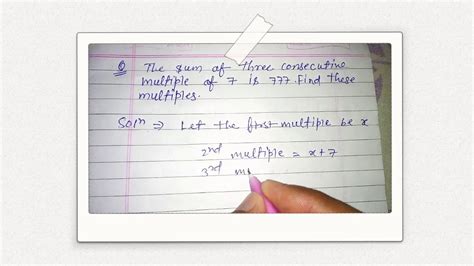 Q The sum of three consecutive
multiple of 7 is 777. Find these
multiples.
Solⁿ ⇒ Let the first multiple be x
2nd multiple = x+7
3rd m